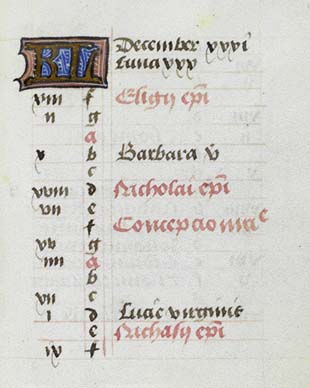 KL December xxxi
Luna xxx
xviii f Eligii epi
ii g
a
x b Barbara v
c
xviii d Nicholai epi
vii e
f Concepcio marie
xv g
iiii a
b
xii c
i d Lucie virginis
e Nichasii epi
ix f